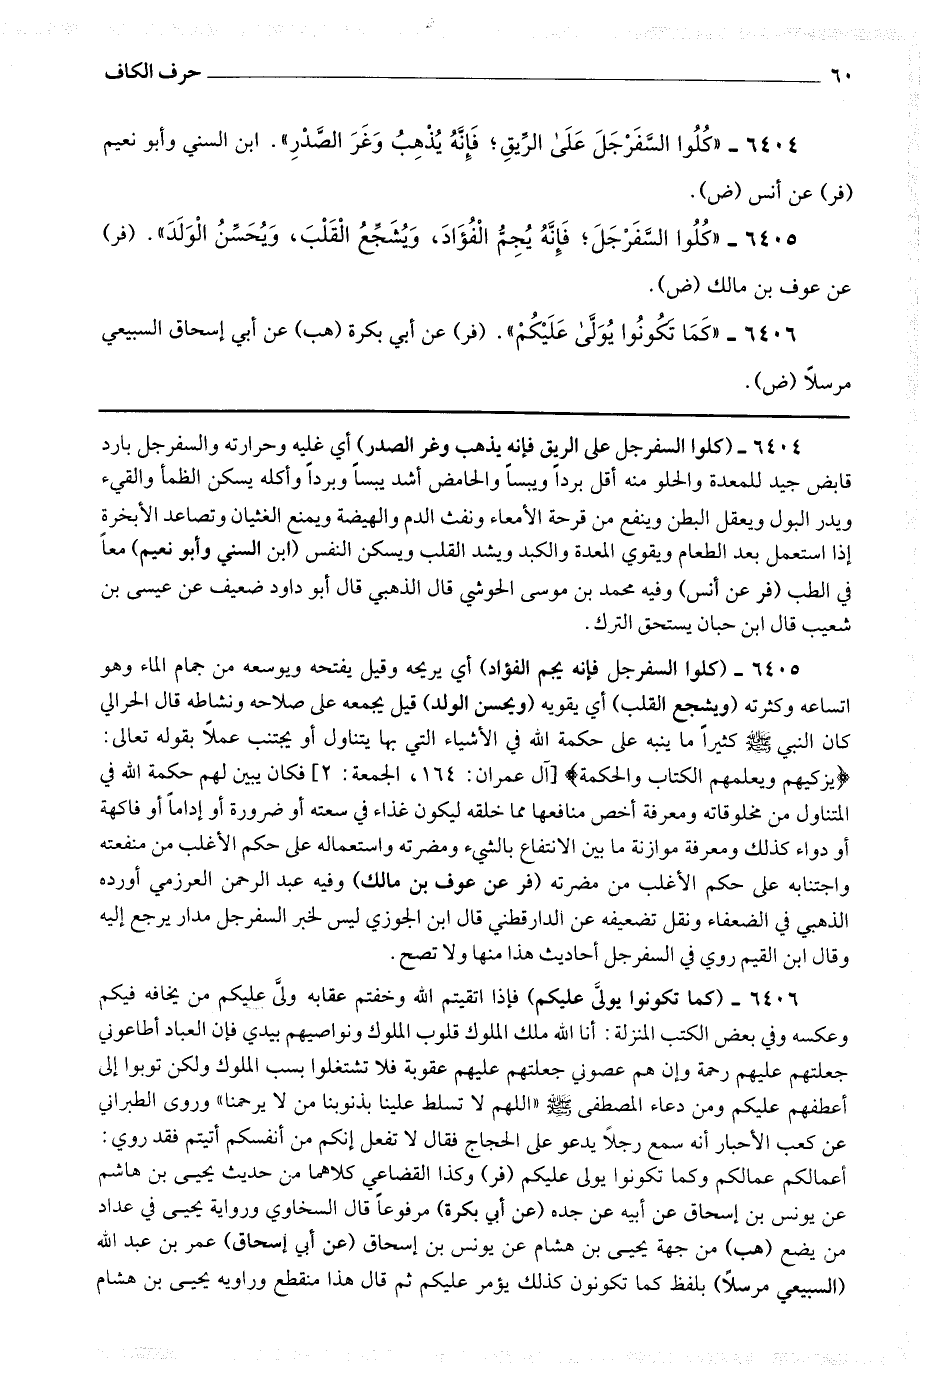 ٦٠ حرف الكاف
٦٤٠٤ ـ «كُلُوا السَّفَرْجَلَ عَلَىٰ الرِّيقِ؛ فَإِنَّهُ يُذْهِبُ وَغَرَ الصَّدْرِ». ابن السني وأبو نعيم
(فر) عن أنس (ض).
٦٤٠٥ ـ «كُلُوا السَّفَرْجَلَ؛ فَإِنَّهُ يُجِمُّ الْفُؤَادَ، وَيُشَجِّعُ الْقَلْبَ، وَيُحَسِّنُ الْوَلَدَ». (فر)
عن عوف بن مالك (ض).
٦٤٠٦ ـ «كَمَا تَكُونُوا يُوَلَّىٰ عَلَيْكُمْ». (فر) عن أبي بكرة (هب) عن أبي إسحاق السبيعي
مرسلاً (ض).
٦٤٠٤ ـ (كلوا السفرجل على الريق فإنه يذهب وغر الصدر) أي غليه وحرارته والسفرجل بارد
قابض جيد للمعدة والحلو منه أقل برداً ويبساً والحامض أشد يبساً وبرداً وأكله يسكن الظمأ والقيء
ويدر البول ويعقل البطن وينفع من قرحة الأمعاء ونفث الدم والهيضة ويمنع الغثيان وتصاعد الأبخرة
إذا استعمل بعد الطعام ويقوي المعدة والكبد ويشد القلب ويسكن النفس (ابن السني وأبو نعيم) معاً
في الطب (فر عن أنس) وفيه محمد بن موسى الحوشي قال الذهبي قال أبو داود ضعيف عن عيسى بن
شعيب قال ابن حبان يستحق الترك.
٦٤٠٥ ـ (كلوا السفرجل فإنه يجم الفؤاد) أي يريحه وقيل يفتحه ويوسعه من جمام الماء وهو
اتساعه وكثرته (ويشجع القلب) أي يقويه (ويحسن الولد) قيل يجمعه على صلاحه ونشاطه قال الحرالي
كان النبي ﷺ كثيراً ما ينبه على حكمة الله في الأشياء التي بها يتناول أو يجتنب عملاً بقوله تعالى:
﴿يزكيهم ويعلمهم الكتاب والحكمة﴾ [آل عمران: ١٦٤، الجمعة: ٢] فكان يبين لهم حكمة الله في
المتناول من مخلوقاته ومعرفة أخص منافعها مما خلقه ليكون غذاء في سعته أو ضرورة أو إداماً أو فاكهة
أو دواء كذلك ومعرفة موازنة ما بين الانتفاع بالشيء ومضرته واستعماله على حكم الأغلب من منفعته
واجتنابه على حكم الأغلب من مضرته (فر عن عوف بن مالك) وفيه عبد الرحمن العرزمي أورده
الذهبي في الضعفاء ونقل تضعيفه عن الدارقطني قال ابن الجوزي ليس لخبر السفرجل مدار يرجع إليه
وقال ابن القيم روي في السفرجل أحاديث هذا منها ولا تصح.
٦٤٠٦ ـ (كما تكونوا يولَّى عليكم) فإذا اتقيتم الله وخفتم عقابه ولىَّ عليكم من يخافه فيكم
وعكسه وفي بعض الكتب المنزلة: أنا الله ملك الملوك قلوب الملوك ونواصيهم بيدي فإن العباد أطاعوني
جعلتهم عليهم رحمة وإن هم عصوني جعلتهم عليهم عقوبة فلا تشتغلوا بسب الملوك ولكن توبوا إلى
أعطفهم عليكم ومن دعاء المصطفى ﷺ «اللهم لا تسلط علينا بذنوبنا من لا يرحمنا» وروى الطبراني
عن كعب الأحبار أنه سمع رجلاً يدعو على الحجاج فقال لا تفعل إنكم من أنفسكم أتيتم فقد روي:
أعمالكم عمالكم وكما تكونوا يولى عليكم (فر) وكذا القضاعي كلاهما من حديث يحيـى بن هاشم
عن يونس بن إسحاق عن أبيه عن جده (عن أبي بكرة) مرفوعاً قال السخاوي ورواية يحيـى في عداد
من يضع (هب) من جهة يحيـى بن هشام عن يونس بن إسحاق (عن أبي إسحاق) عمر بن عبد الله
(السبيعي مرسلاً) بلفظ كما تكونون كذلك يؤمر عليكم ثم قال هذا منقطع وراويه يحيـى بن هشام